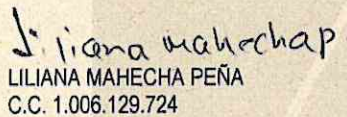 Liliana mahechap
LILIANA MAHECHA PEÑA
C.C. 1.006.129.724